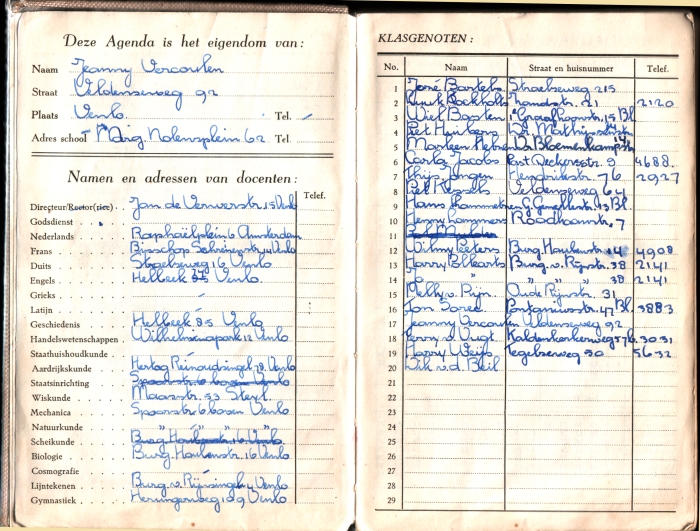 Deze Agenda is het eigendom van:
Naam Jeanny Vercoulen
Straat Veldenseweg 92
Plaats Venlo Tel. -
Adres school Marg Nolensplein 62 Tel.
Namen en adressen van docenten:
Telef.
Directeur/Rector(rice) . . Jan de Verwerstr. 15 Venlo
Godsdienst . .
Nederlands . . . Raphaëlplein 6 Amsterdam
Frans . . . Bisschop Schrijnenstr 14 Venlo
Duits . . . Straelseweg 16 Venlo
Engels . . . Helbeek Venlo.
Grieks . . . -
Latijn . . .
Geschiedenis . . . Helbeek 85 Venlo
Handelswetenschappen . Wilhelminapark 12 Venlo
Staathuishoudkunde . .
Aardrijkskunde . . . Hertog Reinoudsingel Venlo
Staatsinrichting . . . Spoorstr 6 boven Venlo
Wiskunde . . . Maasstr. 33 Steyl.
Mechanica . . . Spoorstr 6 boven Venlo
Natuurkunde . . . " " " "
Scheikunde . . . Burg. 16 Venlo
Biologie . . . Burg. Houtenstr. 16 Venlo
Cosmografie . . .
Lijntekenen . . . Burg. v. Rijnsingel Venlo
Gymnastiek . . . Herungerweg 109 Venlo
KLASGENOTEN :
No. Naam Straat en huisnummer Telef.
1 José Bartels Straelseweg 215
2 Ruud Bockholts 21 2120
3 Wiel Bogsten 15 Bl
4 Piet Dr. Mathijsenstr
5 Marleen Dr. Bloemenkampstr 14
6 Carla Jacobs Past. Deckersstr. 9 4688.
7 Thijs Jansen Hendrikstr. 76 2927
8 Piet Veldenseweg 64
9 Hans G. Gezellestr. 13 Bl.
10 Henny Lommers Roodhoonstr. 7
11
12 Wilmy Peeters Burg. Houtenstr. 14 4908
13 Harry Burg. v. Rijnstr. 38 2141
14 " " " 38 2141
15 Nelly v. Rijn. Oude Rijnstr. 31
16 Jan Pontanusstr. 47 Bl. 3883
17 Jeanny Vercoulen Veldenseweg 92
18 v. Vugt. Kaldenkerkerweg 57b. 3031
19 Harry Weijs Tegelseweg 90 5632
20 Dik v. d. Beil
21
22
23
24
25
26
27
28
29